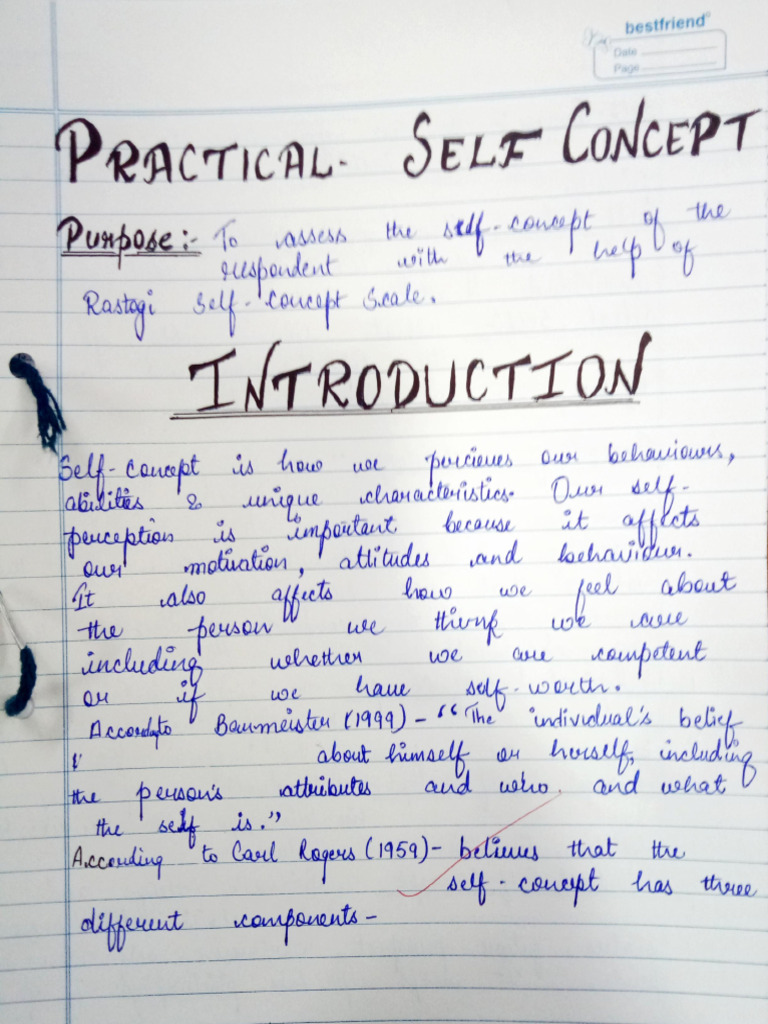 bestfriend
Date
Page
PRACTICAL- SELF CONCEPT
Purpose:- To assess the self-concept of the
respondent with the help of
Rastogi Self-Concept Scale.
INTRODUCTION
Self-concept is how we percieves our behaviours,
abilities & unique characteristics. Our self-
perception is important because it affects
our motivation, attitudes and behaviour.
It also affects how we feel about
the person we think we are
including whether we are competent
or if we have self-worth.
Accordgto Baumeister (1999) - "The individual's belief
about himself or herself, including
the person's attributes and who and what
the self is."
According to Carl Rogers (1959) - believes that the
self-concept has three
different components -